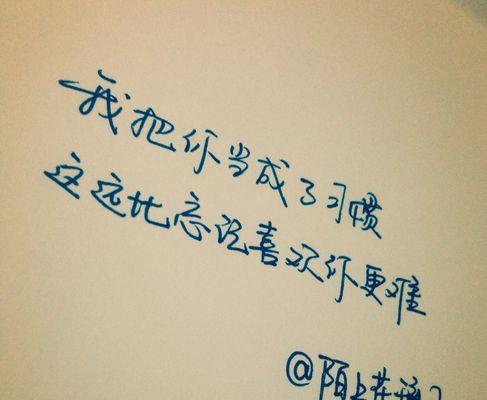 我把你当成了习惯
这远比忘记喜欢你更难
@陌上花